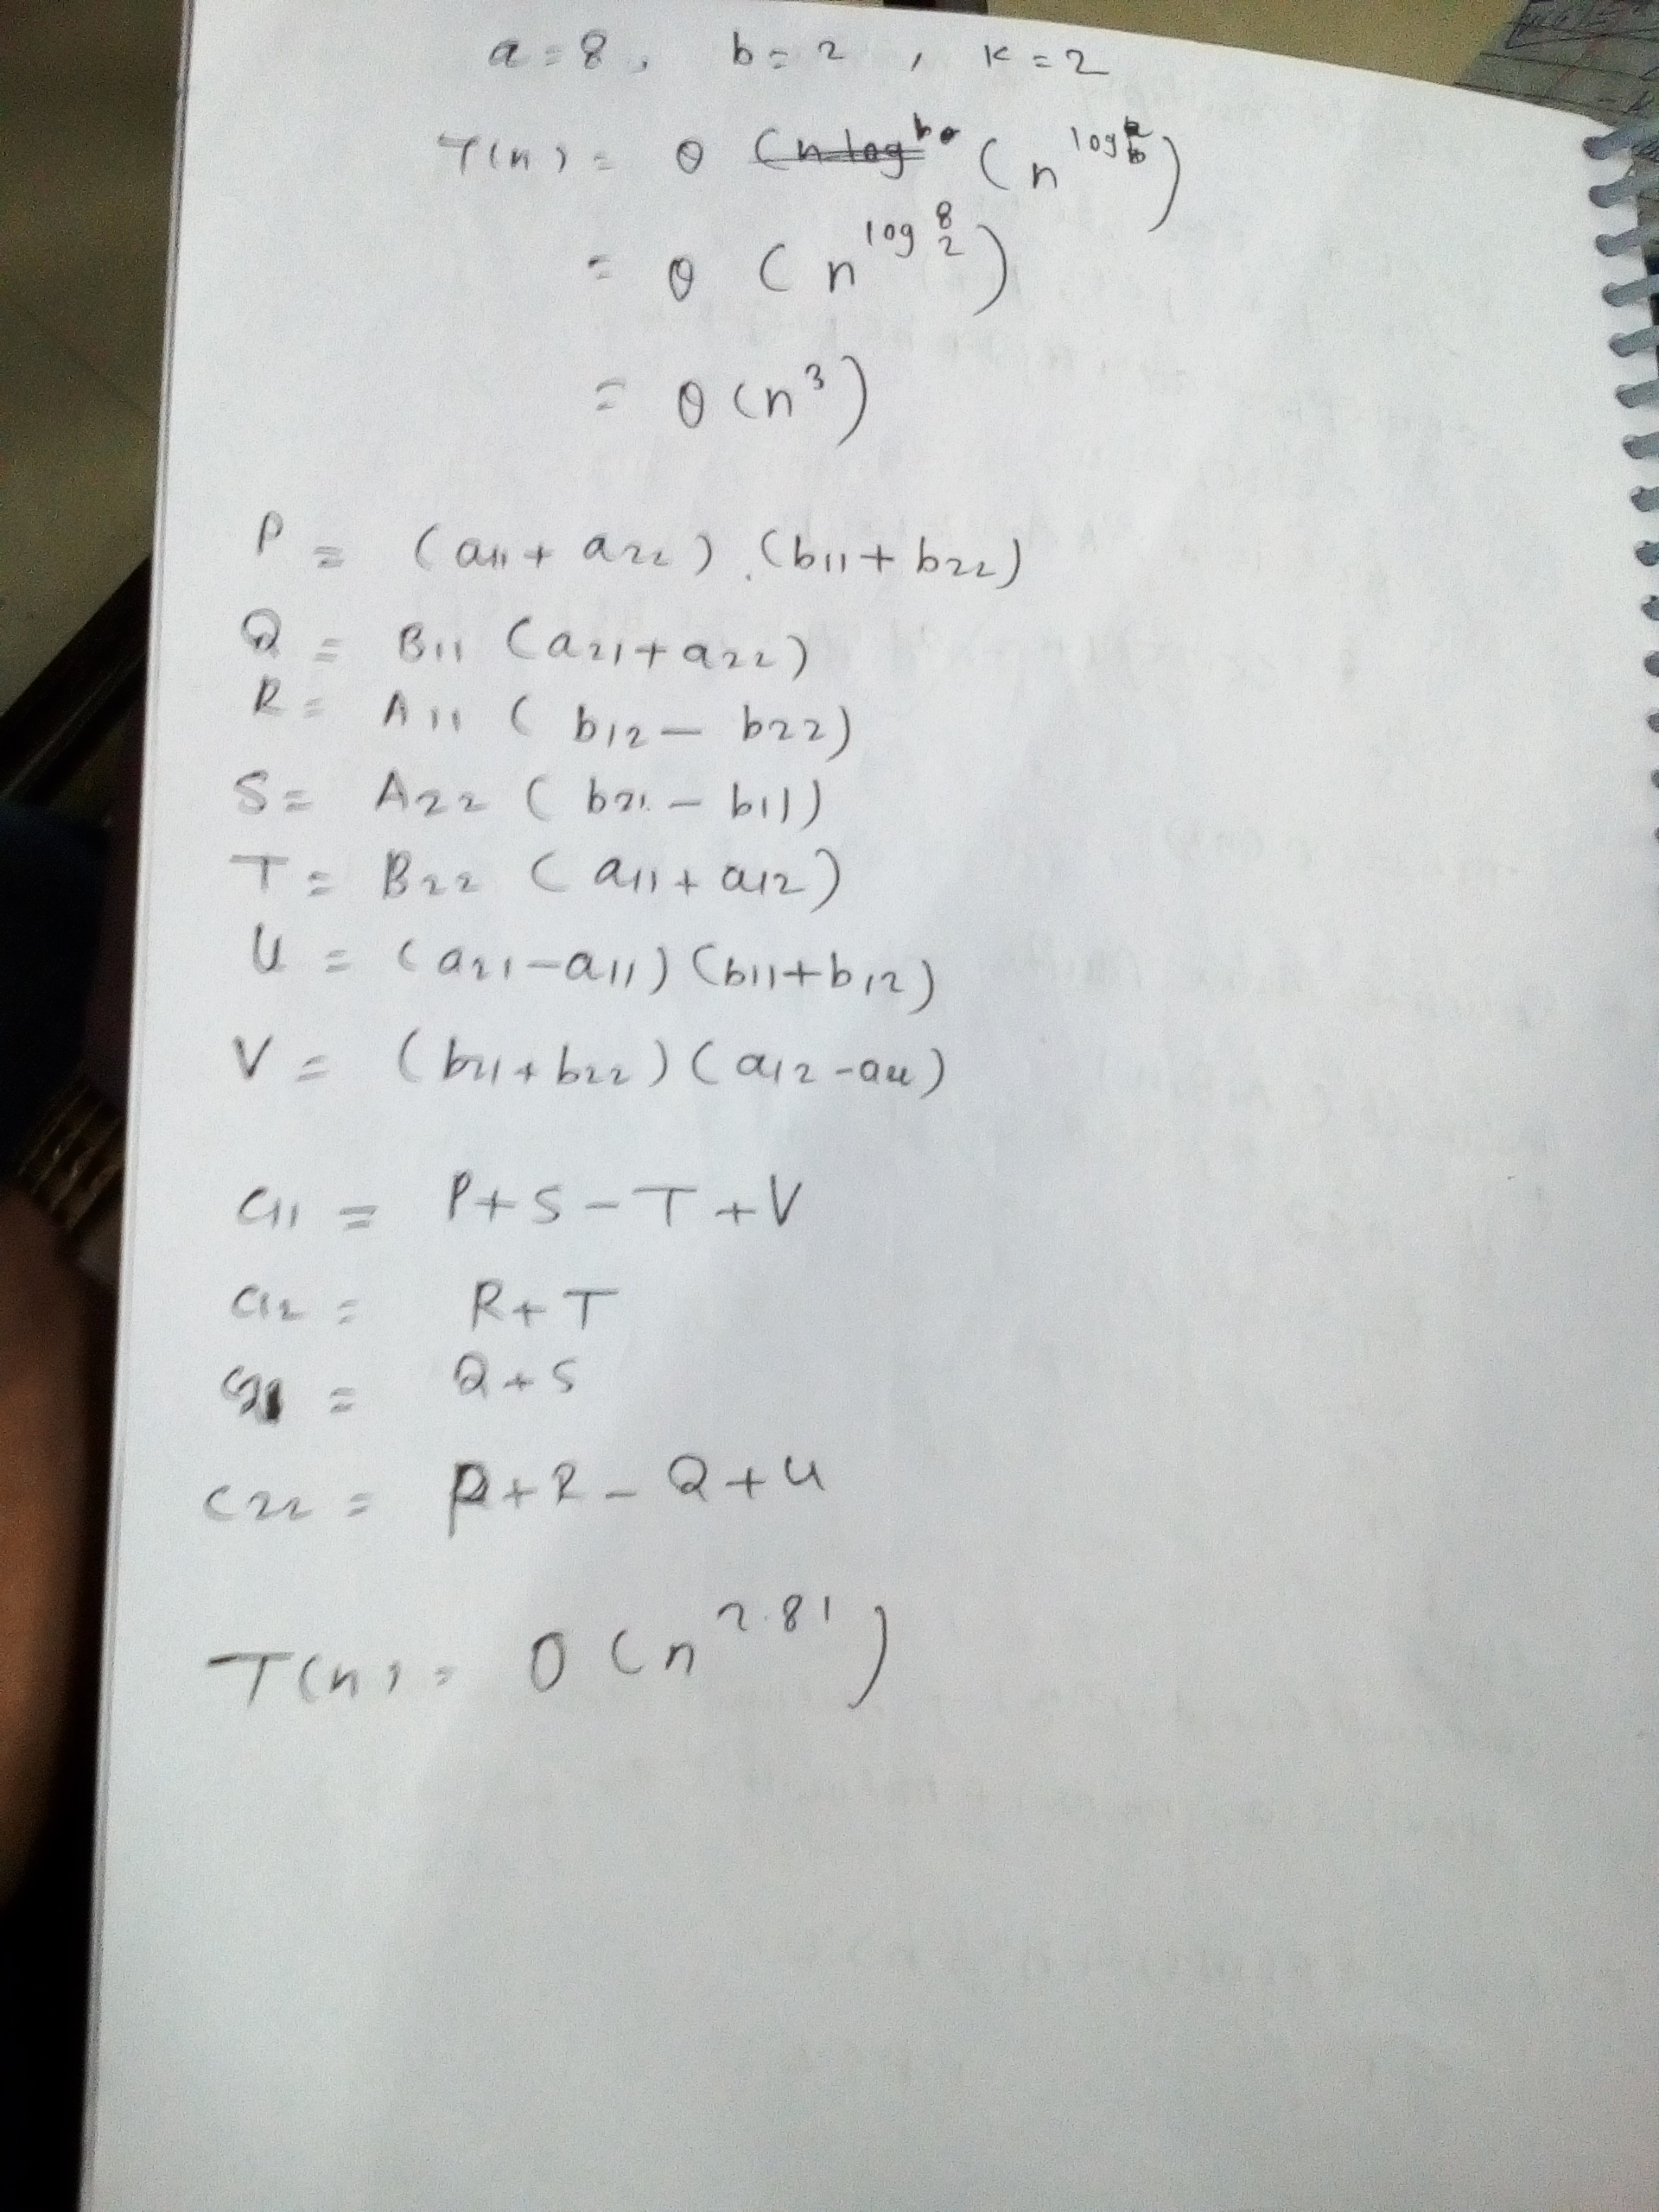 a = 8, b = 2, K = 2
T(n) = θ (n log^ba (n^log a b)
= θ (n^log 8 2)
= θ (n^3)
P = (a11 + a22) . (b11 + b22)
Q = B11 (a21 + a22)
R = A11 ( b12 - b22)
S = A22 ( b21 - b11)
T = B22 ( a11 + a12)
U = (a21 - a11) (b11 + b12)
V = (b21 + b22) ( a12 - a22)
C11 = P + S - T + V
C12 = R + T
C21 = Q + S
C22 = P + R - Q + U
T(n) = O (n^2.81)